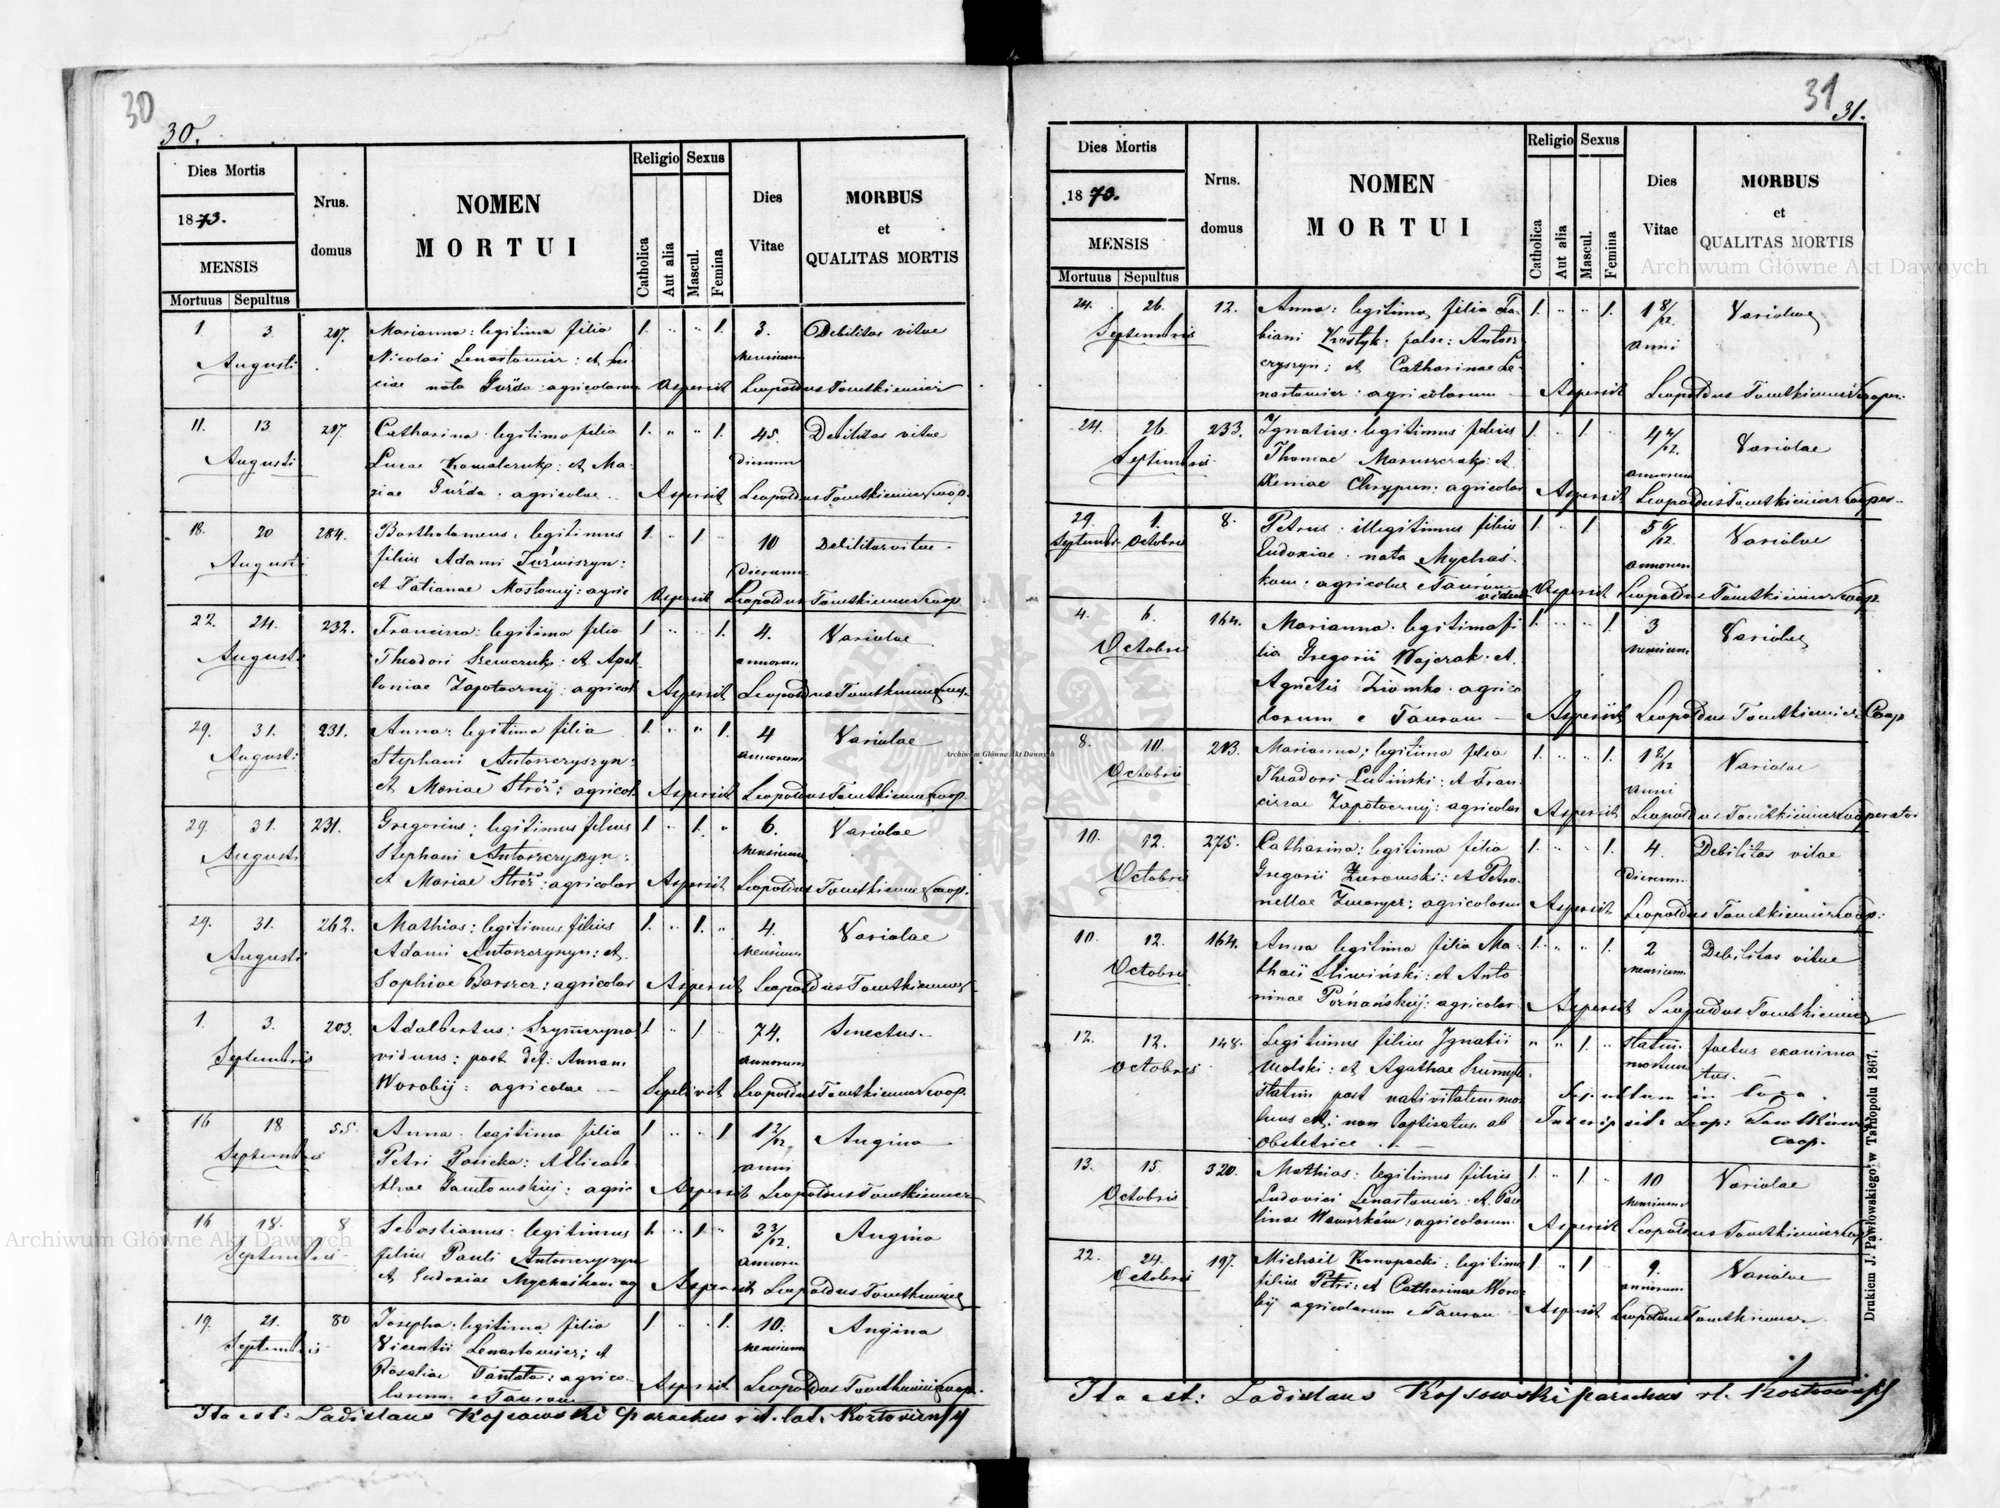 30
30.
Dies Mortis
1873.
MENSIS
Mortuus Sepultus
Nrus. domus
NOMEN
MORTUI
Religio Sexus
Catholica
Aut alia
Mascul.
Femina
Dies
Vitae
MORBUS
et
QUALITAS MORTIS
1 3 207. Marianna: legitima filia 1. " " 1. 3. Debilitas vitae
Augusti Nicolai Lenartowicz: et Lu- Mensium
ciae nata Guzda: agricolarum Aspersit Leopoldus Tomtkiewicz
11. 13 207 Catharina legitima filia 1. " " 1. 45. Debilitas vitae
Augusti Lucae Kowalczuk: et Ma- Dierum
riae Guzda. agricolae Aspersit Leopoldus Tomtkiewicz Coop.
18. 20 284. Bartholomeus: legitimus 1. " 1. 10 Debilitas vitae.
Augusti filius Adami Dierum
et Tatianae Mostowij: agric Aspersit Leopoldus Tomtkiewicz Coop
22. 24. 232. Francisca: legitima filia 1. " " 1. 4. Variolae
Augusti Theodori Szewczuk: et Apol- annorum
loniae Zapotocznij: agricol Aspersit Leopoldus Tomtkiewicz Coop.
29. 31. 231. Anna: legitima filia 1. " " 1. 4 Variolae
Augusti Stephani Antoszczyszyn: annorum
et Mariae Stróż: agricol Aspersit Leopoldus Tomtkiewicz Coop.
29. 31. 231. Gregorius: legitimus filius 1. " 1. " 6. Variolae
Augusti Stephani Antoszczyszyn: Mensium
et Mariae Stróż: agricolar Aspersit Leopoldus Tomtkiewicz Coop.
29. 31. 262. Mathias: legitimus filius 1. " 1. " 4. Variolae
Augusti Adami Antoszczyszyn: et Mensium
Sophiae Barszcz: agricolar Aspersit Leopoldus Tomtkiewicz
1. 3. 203. Adalbertus: 1 " 1. 74. Senectus.
Septembris viduus: post def: Annam annorum
Worobij: agricolae Sepelivit Leopoldus Tomtkiewicz Coop.
16 18 55. Anna. legitima filia 1 " " 1 1 2/12 Angina
Septembris Petri Pasieka: et Elisabe- anni
thae agric Aspersit Leopoldus Tomtkiewicz
16 18. 8 Sebastianus: legitimus 1. " 1. " 3 3/12. Angina
Septembris filius Pauli Antoszczyszyn annorum
et Eudoxiae Mychaśkow ag Aspersit Leopoldus Tomtkiewicz
19. 21. 80 Josepha: legitima filia 1 " " 1. 10. Angina
Septembris Vicentii Lenartowicz: et Mensium
Rosaliae agrico- Aspersit Leopoldus Tomtkiewicz Coop.
larum e Taurow
Ita est: Ladislaus Kossowski parochus rit. lat. Kozłoviensis
31
31.
Dies Mortis
1873.
MENSIS
Mortuus Sepultus
Nrus. domus
NOMEN
MORTUI
Religio Sexus
Catholica
Aut alia
Mascul.
Femina
Dies
Vitae
MORBUS
et
QUALITAS MORTIS
24. 26. 12. Anna: legitima filia Fa- 1. " " 1. 1 8/12 Variolae
Septembris biani Krostyk. false: Antosz- anni
czyszyn: et Catharinae Le-
nartowicz: agricolarum Aspersit Leopoldus Tomtkiewicz Cooper.
24. 26 233. Ignatius. legitimus filius 1. " 1. 4 4/12 Variolae
Septembris Thomae Maruszczak: et annorum
Xeniae Chrypun: agricolar Aspersit Leopoldus Tomtkiewicz Cooper.
29. 1. 8. Petrus: illegitimus filius 1. " 1. 5 6/12 Variolae
Septembr Octobris Eudoxiae. nata Mychaś- annorum
kow: agricolae e Taurow Aspersit Leopoldus Tomtkiewicz Coop
vidua
4. 6. 164. Marianna. legitima fi- 1. " " 1. 3 Variolae
Octobris lia Gregorii Wajczak. et Mensium
Agnetis Ziomko. agrico
larum e Taurow Aspersit Leopoldus Tomtkiewicz Coop
8. 10. 213. Marianna: legitima filia 1. " " 1. 1 8/12 Variolae
Octobris Theodori Lubiński: et Fran- anni
ciscae Zapotocznij: agricolar Aspersit Leopoldus Tomtkiewicz Cooperator
10. 12. 275. Catharina: legitima filia 1. " " 1. 4. Debilitas vitae
Octobris Gregorii Żurowski: et Petro- Dierum.
nellae agricolarum Aspersit Leopoldus Tomtkiewicz Coop:
10. 12. 164. Anna legitima filia Ma- 1. " " 1. 2 Debilitas vitae
Octobris thaei Śliwiński: et Anto mensium.
ninae Poznańskij: agricolar. Aspersit Leopoldus Tomtkiewicz
12. 12. 148. Legitimus filius Ignatii " " 1. " statim foetus exanima
Octobris Wolski: et Agathae mortuus tus.
statim post nativitatem mor- Sepultum in loco.
tuus et non baptisatus ab Inscripsit: Leop: Tomtkiewicz
obstetrice Coop.
13. 15. 320. Mathias: legitimus filius 1. " 1. " 10 Variolae
Octobris Ludovici Lenartowicz: et Pau Mensium
linae agricolarum Aspersit Leopoldus Tomtkiewicz Coop.
22. 24. 197. Michael Konopacki: legitimus 1 " 1 9. Variolae
Octobris filius Petri: et Catharinae Woro annorum
bij agricolarum e Taurow Aspersit Leopoldus Tomtkiewicz
Ita est: Ladislaus Kossowski parochus rl. Kozłoviensis
Drukiem J. Pawłowskiego w Tarłopolu 1867.
Archiwum Główne Akt Dawnych
Archiwum Główne Akt Dawnych
Archiwum Główne Akt Dawnych
ARCHIWUM GŁÓWNE AKT DAWNYCH